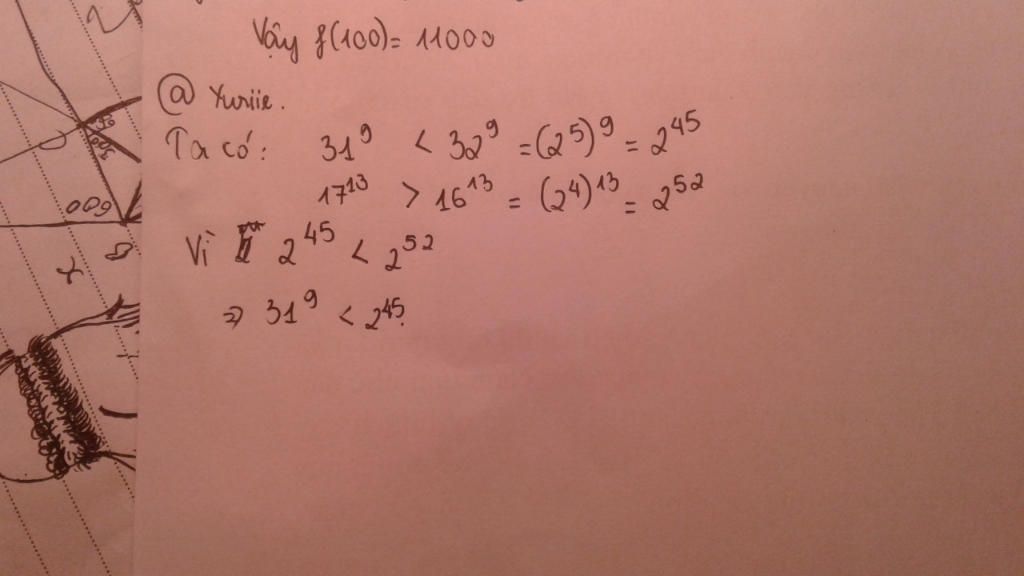 Vậy f(100) = 11000
@ Yuriie.
Ta có: 31^9 < 32^9 = (2^5)^9 = 2^45
17^13 > 16^13 = (2^4)^13 = 2^52
Vì 2^45 < 2^52
=> 31^9 < 2^45.
60°